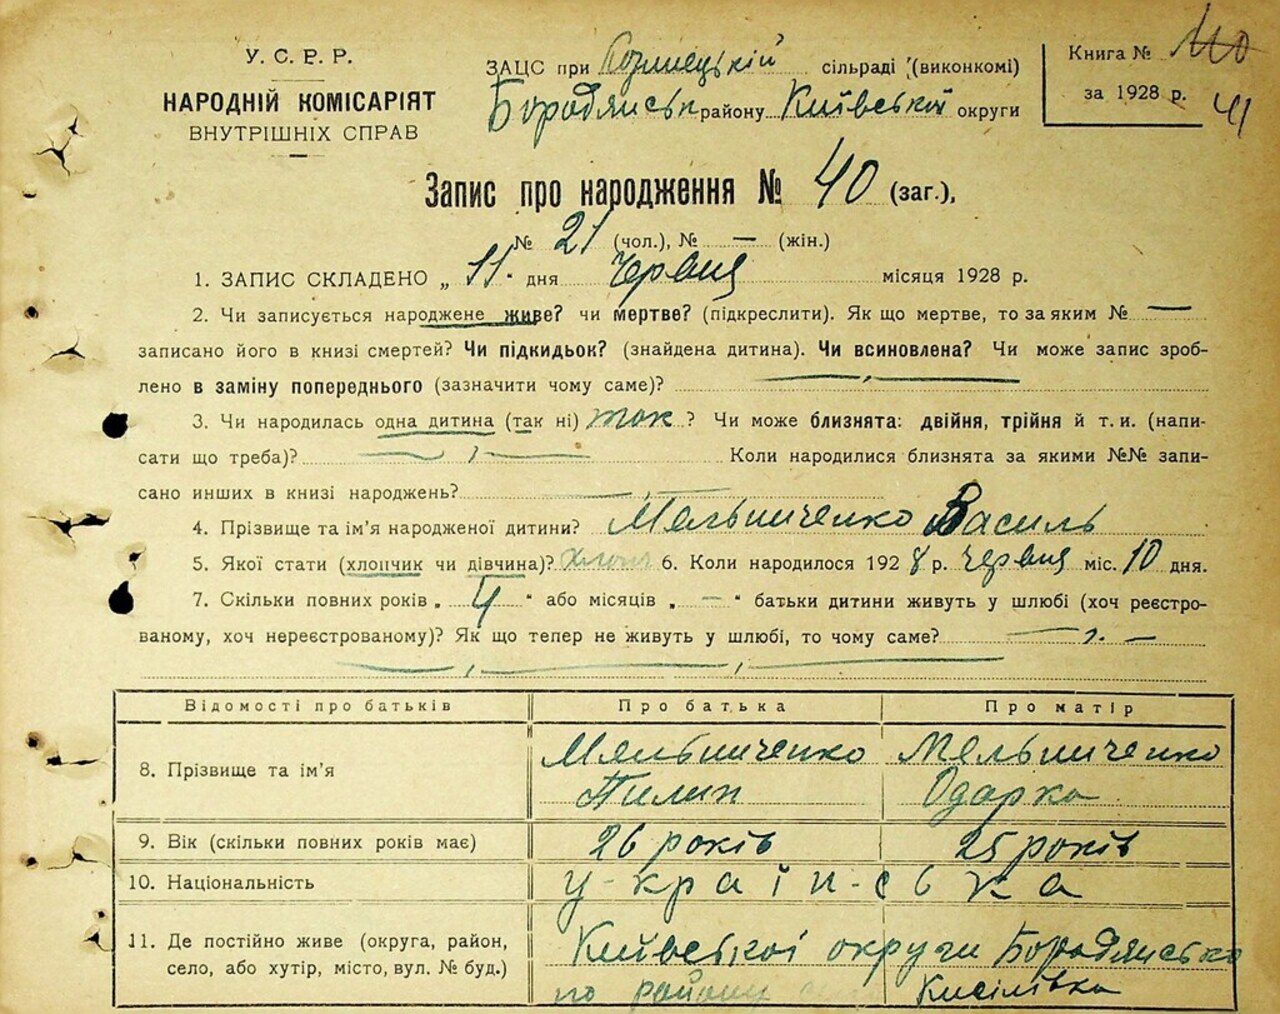 У. С. Р. Р.
НАРОДНІЙ КОМІСАРІЯТ
ВНУТРІШНІХ СПРАВ
ЗАЦС при сільраді (виконкомі)
Бородянськ району Київської округи
Книга № 110
за 1928 р. 41
Запис про народження № 40 (заг.),
№ 21 (чол.), № — (жін.)
1. ЗАПИС СКЛАДЕНО „ 11 " дня Червня місяця 1928 р.
2. Чи записується народжене живе? чи мертве? (підкреслити). Як що мертве, то за яким № —
записано його в книзі смертей? Чи підкидьок? (знайдена дитина). Чи всиновлена? Чи може запис зроб-
лено в заміну попереднього (зазначити чому саме)?
3. Чи народилась одна дитина (так ні) так ? Чи може близнята: двійня, трійня й т. и. (напи-
сати що треба)? Коли народилися близнята за якими №№ запи-
сано инших в книзі народжень?
4. Прізвище та ім'я народженої дитини? Мельниченко Василь
5. Якої стати (хлопчик чи дівчина)? 6. Коли народилося 192 8 р. червня міс. 10 дня.
7. Скільки повних років „ 4 " або місяців „ — " батьки дитини живуть у шлюбі (хоч реєстро-
ваному, хоч нереєстрованому)? Як що тепер не живуть у шлюбі, то чому саме?
Відомості про батьків Про батька Про матір
8. Прізвище та ім'я Мельниченко Пилип Мельниченко Одарка
9. Вік (скільки повних років має) 26 років 25 років
10. Національність у-країн-ська
11. Де постійно живе (округа, район,
село, або хутір, місто, вул. № буд.)
Київської округи Бородянсько
го району Кисілівка